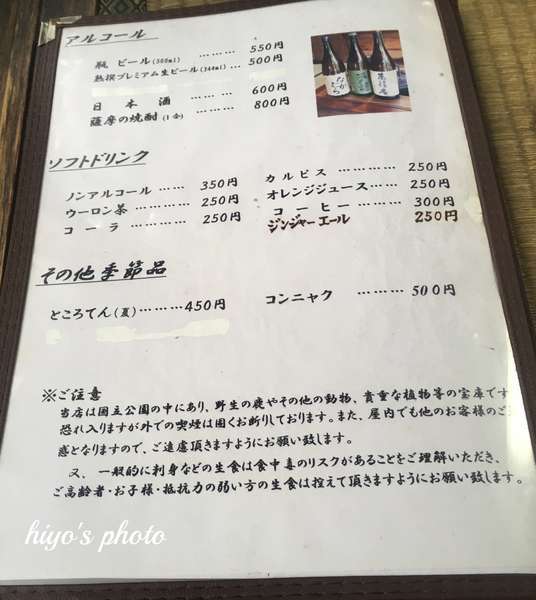 アルコール
瓶 ビール(500ml) ……… 550円
熟撰プレミアム生ビール(300ml)… 500円
日 本 酒 ……… 600円
薩摩の焼酎(1合) ……… 800円
ソフトドリンク
ノンアルコール …… 350円
ウーロン茶 ……… 250円
コ ー ラ ……… 250円
カ ル ピ ス ……… 250円
オレンジジュース…… 250円
コ ー ヒ ー ……… 300円
ジンジャーエール 250円
その他季節品
ところてん(夏)……… 450円
コンニャク ……… 500円
※ご注意
当店は国立公園の中にあり、野生の鹿やその他の動物、貴重な植物等の宝庫です
恐れ入りますが外での喫煙は固くお断りしております。また、屋内でも他のお客様のご
惑となりますので、ご遠慮頂きますようにお願い致します。
又、一般的に刺身などの生食は食中毒のリスクがあることをご理解いただき、
ご高齢者・お子様・抵抗力の弱い方の生食は控えて頂きますようにお願い致します。
hiyo's photo